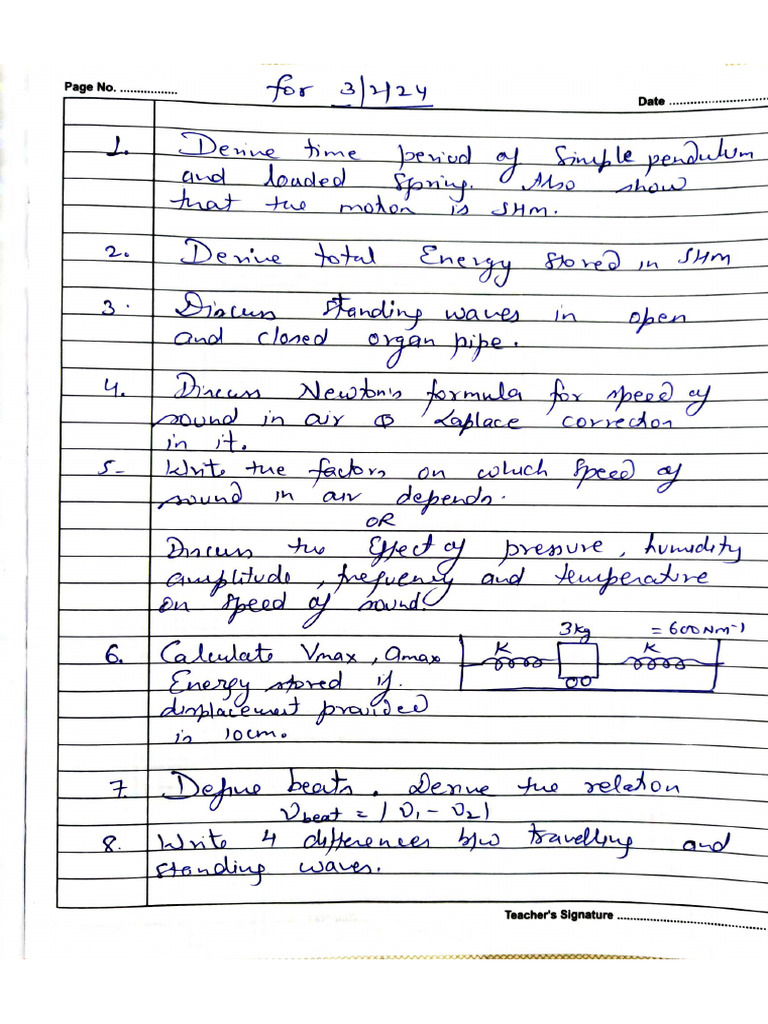 Page No. ................. for 3/2/24 Date ..........................
1. Derive time period of Simple pendulum
and loaded spring. Also show
that the motion is SHM.
2. Derive total Energy stored in SHM
3. Discuss Standing waves in open
and closed organ pipe.
4. Discuss Newton's formula for speed of
sound in air & Laplace correction
in it.
5- Write the factors on which speed of
sound in air depends.
OR
Discuss the Effect of pressure, humidity
amplitude, frequency and temperature
on speed of sound.
3kg = 600Nm-1
6. Calculate Vmax, amax K K
Energy stored if
displacement provided
is 10cm.
7. Define beats. Derive the relation
νbeat = |ν1 - ν2|
8. Write 4 differences b/w travelling and
standing waves.
Teacher's Signature ........................................